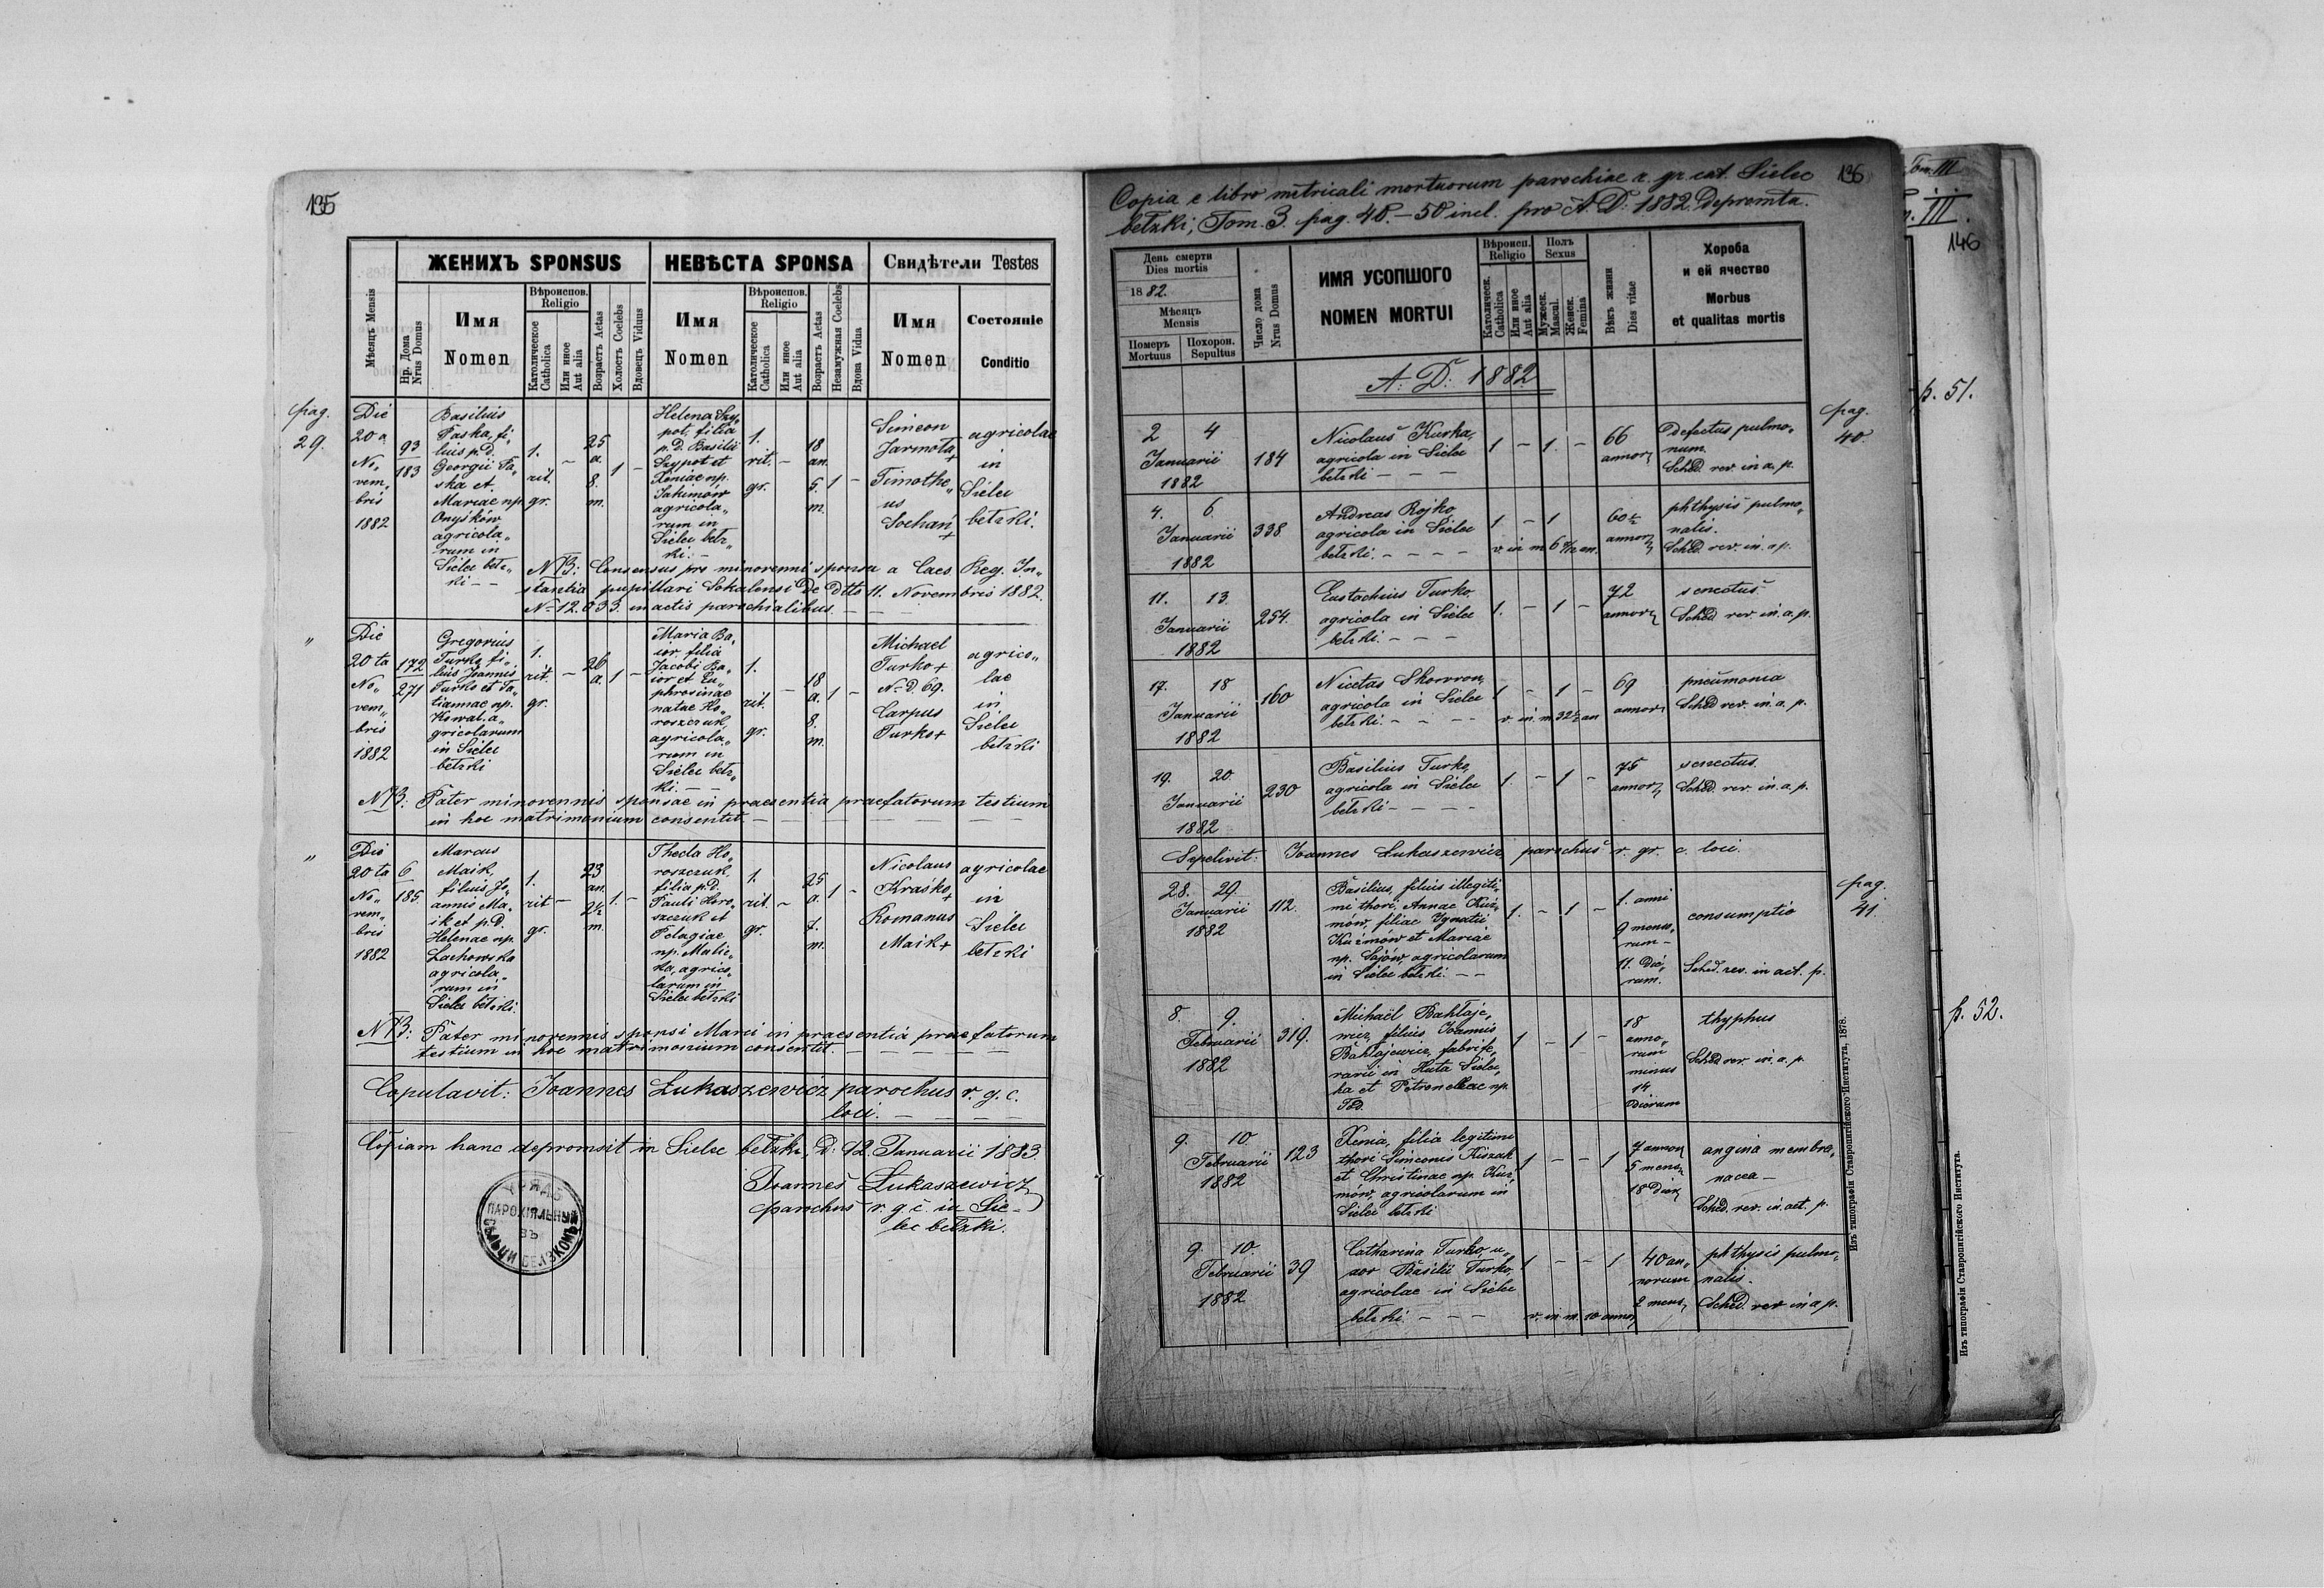 135
ЖЕНИХЪ SPONSUS
НЕВѢСТА SPONSA
Свидѣтели Testes
Мѣсяцъ Mensis
Нр. Дома
Nrus Domus
Имя
Nomen
Вѣроиспов.
Religio
Католическое
Catholica
Или иное
Aut alia
Возрастъ Aetas
Холостъ Coelebs
Вдовецъ Viduus
Имя
Nomen
Вѣроиспов.
Religio
Католическое
Catholica
Или иное
Aut alia
Возрастъ Aetas
Незамужная Coelebs
Вдова Vidua
Имя
Nomen
Состояніе
Conditio
pag.
29.
Die
20 a
No„
vem„
bris
1882
93
183
Basilius
Paska, fi„
lius p.D.
Georgii Pa„
ska et
Mariae np.
Onyśków
agricola„
rum in
Sielec bełz„
ki – –
1.
rit.
gr.
–
25
a.
8.
m.
1
–
Helena Szy„
pot, filia
p.D. Basilii
Szypot et
Xeniae np.
Jakimów
agricola„
rum in
Sielec bełz„
ki. –
1.
rit.
gr.
–
18
an.
5.
m.
1
–
Simeon
Jarmoła
+
Timothe„
us
Sochań
+
agricolae
in
Sielec
bełzki.
NB: Consensus pro minorenni sponsa a Caes. Reg. In„
stantia pupillari Sokalensi de dtto 11. Novembris 1882.
N– 12.033. in actis parochialibus. – –
„
Die
20 ta
No„
vem„
bris
1882
172
271
Gregorius
Turko, fi„
lius Joannis
Turko et Ta„
tiannae np.
Kowal. a„
gricolarum
in Sielec
bełzki
1.
rit.
gr.
–
26
a.
1
–
Maria Ba„
ior, filia
Jacobi Ba„
ior et Eu„
phrosinae
natae Ho„
roszczuk
agricola„
rum in
Sielec bełz„
ki. – –
1.
rit.
gr.
–
18
a.
8.
m.
1
–
Michael
Turko +
N– D. 69.
Carpus
Turko +
agrico„
lae
in
Sielec
bełzki
NB: Pater minorennis sponsae in praesentia praefatorum testium
in hoc matrimonium consentit. – – – – – –
„
Die
20 ta
No„
vem„
bris
1882
6
185.
Marcus
Maik,
filius Jo„
annis Ma„
ik et p.D.
Helenae np.
Lachowska
agricola„
rum in
Sielec bełzki.
1.
rit
gr.
–
23
an.
2½
m.
1.
–
Thecla Ho„
roszczuk,
filia p.D.
Pauli Horo„
szczuk et
Pelagiae
np. Malic„
ka, agrico„
larum in
Sielec bełzki
1.
rit.
gr.
–
25
a.
7.
m.
1
–
Nicolaus
Kraśko
+
Romanus
Maik +
agricolae
in
Sielec
bełzki
NB: Pater minorennis sponsi Marci in praesentia praefatorum
testium in hoc matrimonium consentit. – – – – –
Copulavit: Joannes Łukaszewicz parochus r. g. c.
loci. – – – –
Copiam hanc depromsit in Sielec bełzki, d: 12. Januarii 1883.
Joannes Łukaszewicz
parochus r. g. c. in Sie–
lec bełzki.
УРЯДЪ
ПАРОХІЯЛЬНЫЙ
ВЪ
СѢЛЬЦИ БЕЛЗКОМЪ
136
Copia e libro metricali mortuorum parochiae r. gr. cat. Sielec
bełzki, Tom. 3. pag. 40. – 50 incl. pro A. D: 1882. depromta.
День смерти
Dies mortis
1882.
Мѣсяцъ
Mensis
Померъ
Mortuus
Похорон.
Sepultus
Число дома
Nrus Domus
ИМЯ УСОПШОГО
NOMEN MORTUI
Вѣроисп.
Religio
Католическ.
Catholica
Или иное
Aut alia
Полъ
Sexus
Мужеск.
Mascul.
Женск.
Femina
Вѣкъ жизни
Dies vitae
Хороба
и ей ячество
Morbus
et qualitas mortis
A: D: 1882
pag.
40.
2 4
Januarii
1882
184
Nicolaus Kurka,
agricola in Sielec
bełzki – – –
1 – 1. –
66
annor.
defectus pulmo„
num.
Sched. rev. in a. p.
4. 6.
Januarii
1882
338
Andreas Rojko,
agricola in Sielec
bełzki. – – – –
1 – 1
60½
annor.
phthysis pulmo„
nalis.
Sched. rev. in. a p.
11. 13.
Januarii
1882
254.
Eustachius Turko,
agricola in Sielec
bełzki. – – –
1. – 1 –
72
annor.
senectus.
Sched. rev. in. a. p.
17. 18
Januarii
1882
160
Nicetas Skowron,
agricola in Sielec
bełzki. – – – –
1 – 1 –
v. in. m. 32½ an
69
annor.
pneumonia
Sched rev. in. a. p.
19. 20
Januarii
1882
230
Basilius Turko,
agricola in Sielec
bełzki – – – –
1. – 1 –
75
annor.
senectus.
Sched. rev. in. a. p.
Sepelivit: Joannes Łukaszewicz, parochus r. gr. c. loci.
pag.
41.
28. 29.
Januarii
1882
112.
Basilius, filius illegiti„
mi thori, Annae Kuź„
mów, filiae Ignatii
Kuźmów et Mariae
np. Sajów, agricolarum
in Sielec bełzki. – –
1. – 1 –
1. anni
9 menso„
rum –
11. die„
rum.
consumptio
Sched. rev. in act. p.
8 9.
Februarii
1882
319.
Michael Bahłaje„
wicz, filius Joannis
Bahłajewicz, fabrife„
rarii in Huta Sielec„
ka et Petronellae np.
1 – 1 –
18
anno„
rum
minus
14
dierum
thyphus
Sched rev. in. a. p.
9. 10
Februarii
1882
123
Xenia, filia legitimi
thori Simeonis Kiszak
et Christinae np. Kuź„
mów, agricolarum in
Sielec bełzki
1 – – 1
7 annor.
5 mens.
18 dier.
angina membra„
nacea –
Sched. rev. in. act. p.
9. 10.
Februarii
1882
39
Catharina Turko, u„
xor Basilii Turko,
agricolae in Sielec
bełzki. – – –
1 – – 1
v. in m. 10 annor.
40 an„
norum
2 mens.
phthysis pulmo„
nalis.
Sched. rev in a p.
Изъ типографіи Ставропигійского Института, 1878.
Tom. III
III.
146
p. 51.
p. 52.
Изъ типографіи Ставропигійского Института.